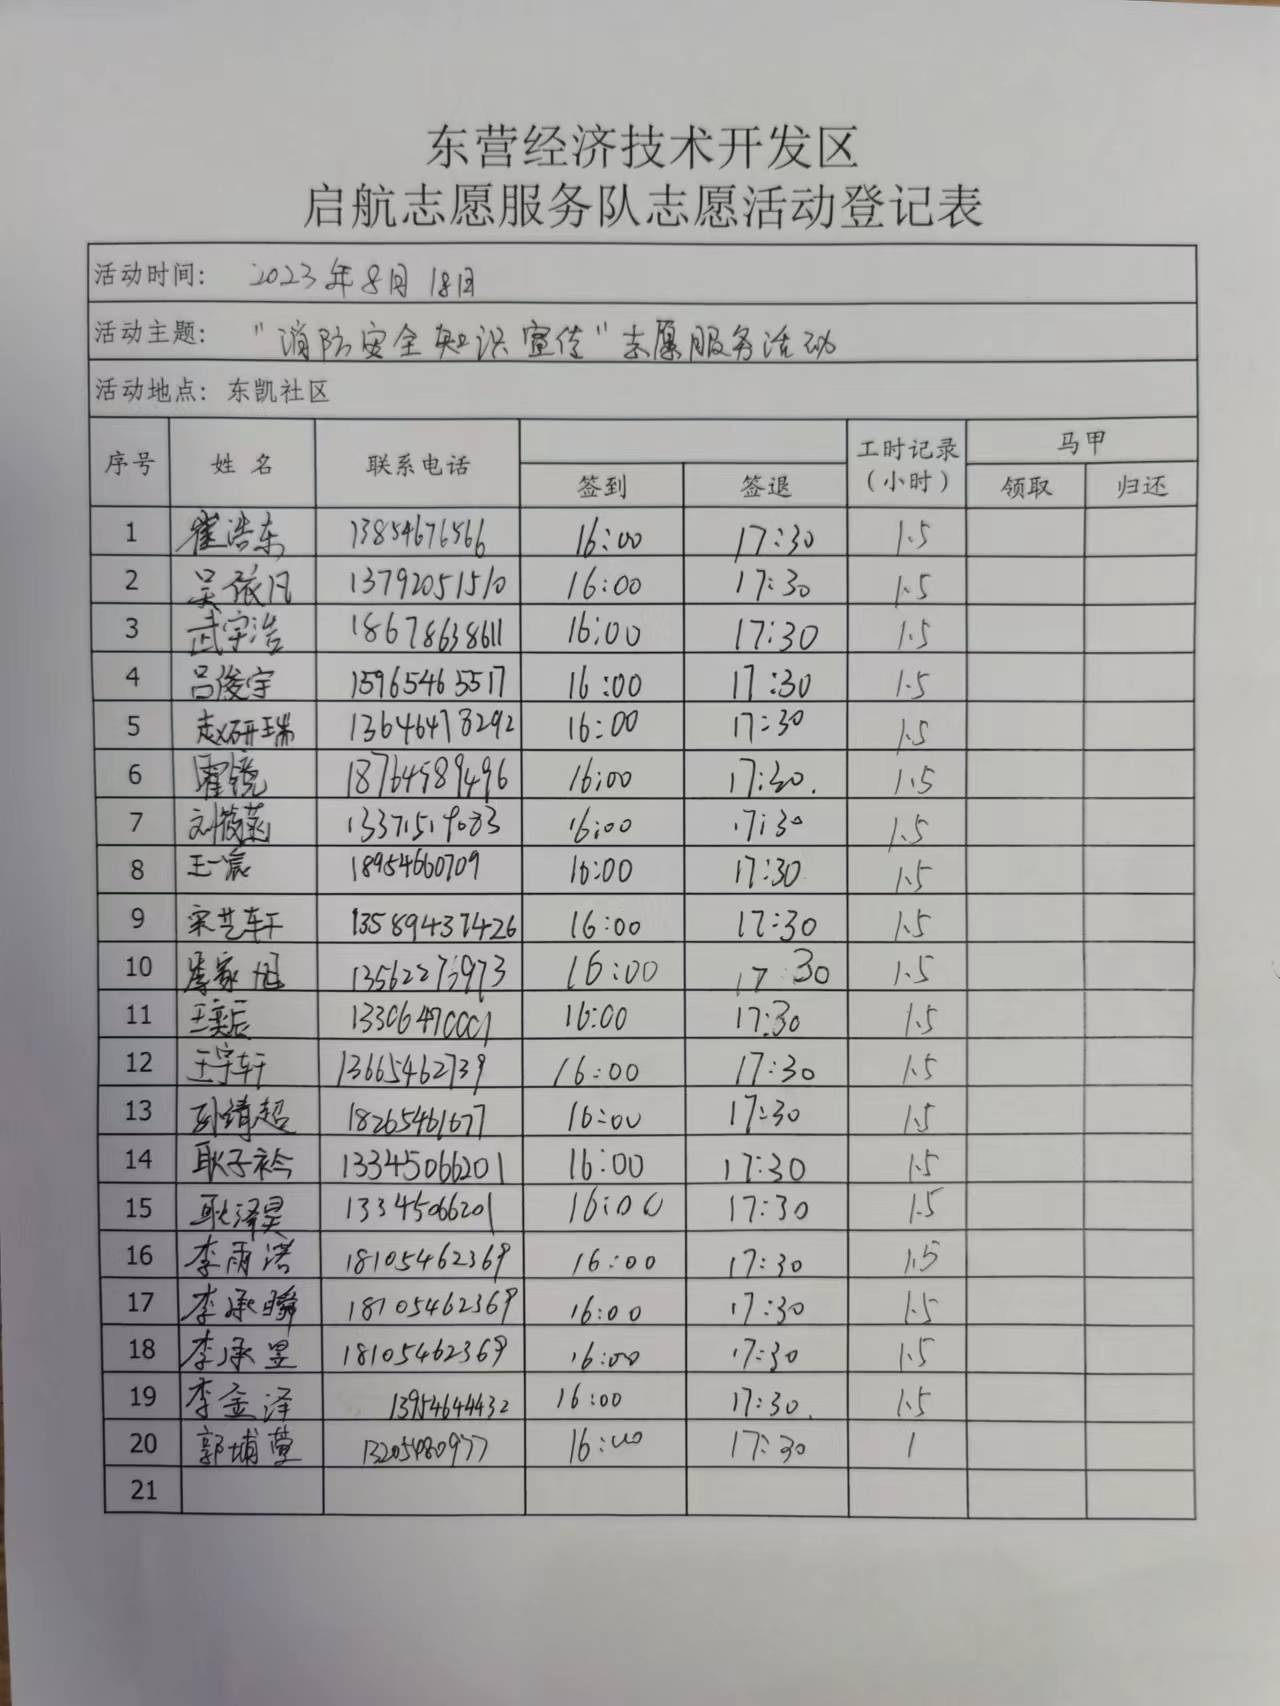 东营经济技术开发区
启航志愿服务队志愿活动登记表
活动时间： 2023年8月18日
活动主题： "消防安全知识宣传"志愿服务活动
活动地点：东凯社区
序号 姓名 联系电话 签到 签退 工时记录（小时） 马甲 领取 归还
1 崔浩东 13854676566 16:00 17:30 1.5
2 吴依凡 13792051510 16:00 17:30 1.5
3 武宇浩 18678638611 16:00 17:30 1.5
4 吕俊宇 15965465517 16:00 17:30 1.5
5 赵研瑞 13646478292 16:00 17:30 1.5
6 翟镜 18764989496 16:00 17:30. 1.5
7 刘筱菡 16:00 17:30 1.5
8 王一宸 18954660709 16:00 17:30 1.5
9 宋艺轩 13589437426 16:00 17:30 1.5
10 16:00 17 30 1.5
11 王奕辰 13306470001 16:00 17:30 1.5
12 王宇轩 13665462739 16:00 17:30 1.5
13 孙靖超 18265461677 16:00 17:30 1.5
14 耿子衿 13345066201 16:00 17:30 1.5
15 耿泽昊 13345066201 16:00 17:30 1.5
16 李雨诺 18105462369 16:00 17:30 1.5
17 李承瞬 18105462369 16:00 17:30 1.5
18 李承昱 18105462369 16:00 17:30 1.5
19 李金泽 13954644432 16:00 17:30. 1.5
20 郭埔萱 13205480977 16:00 17:30 1
21